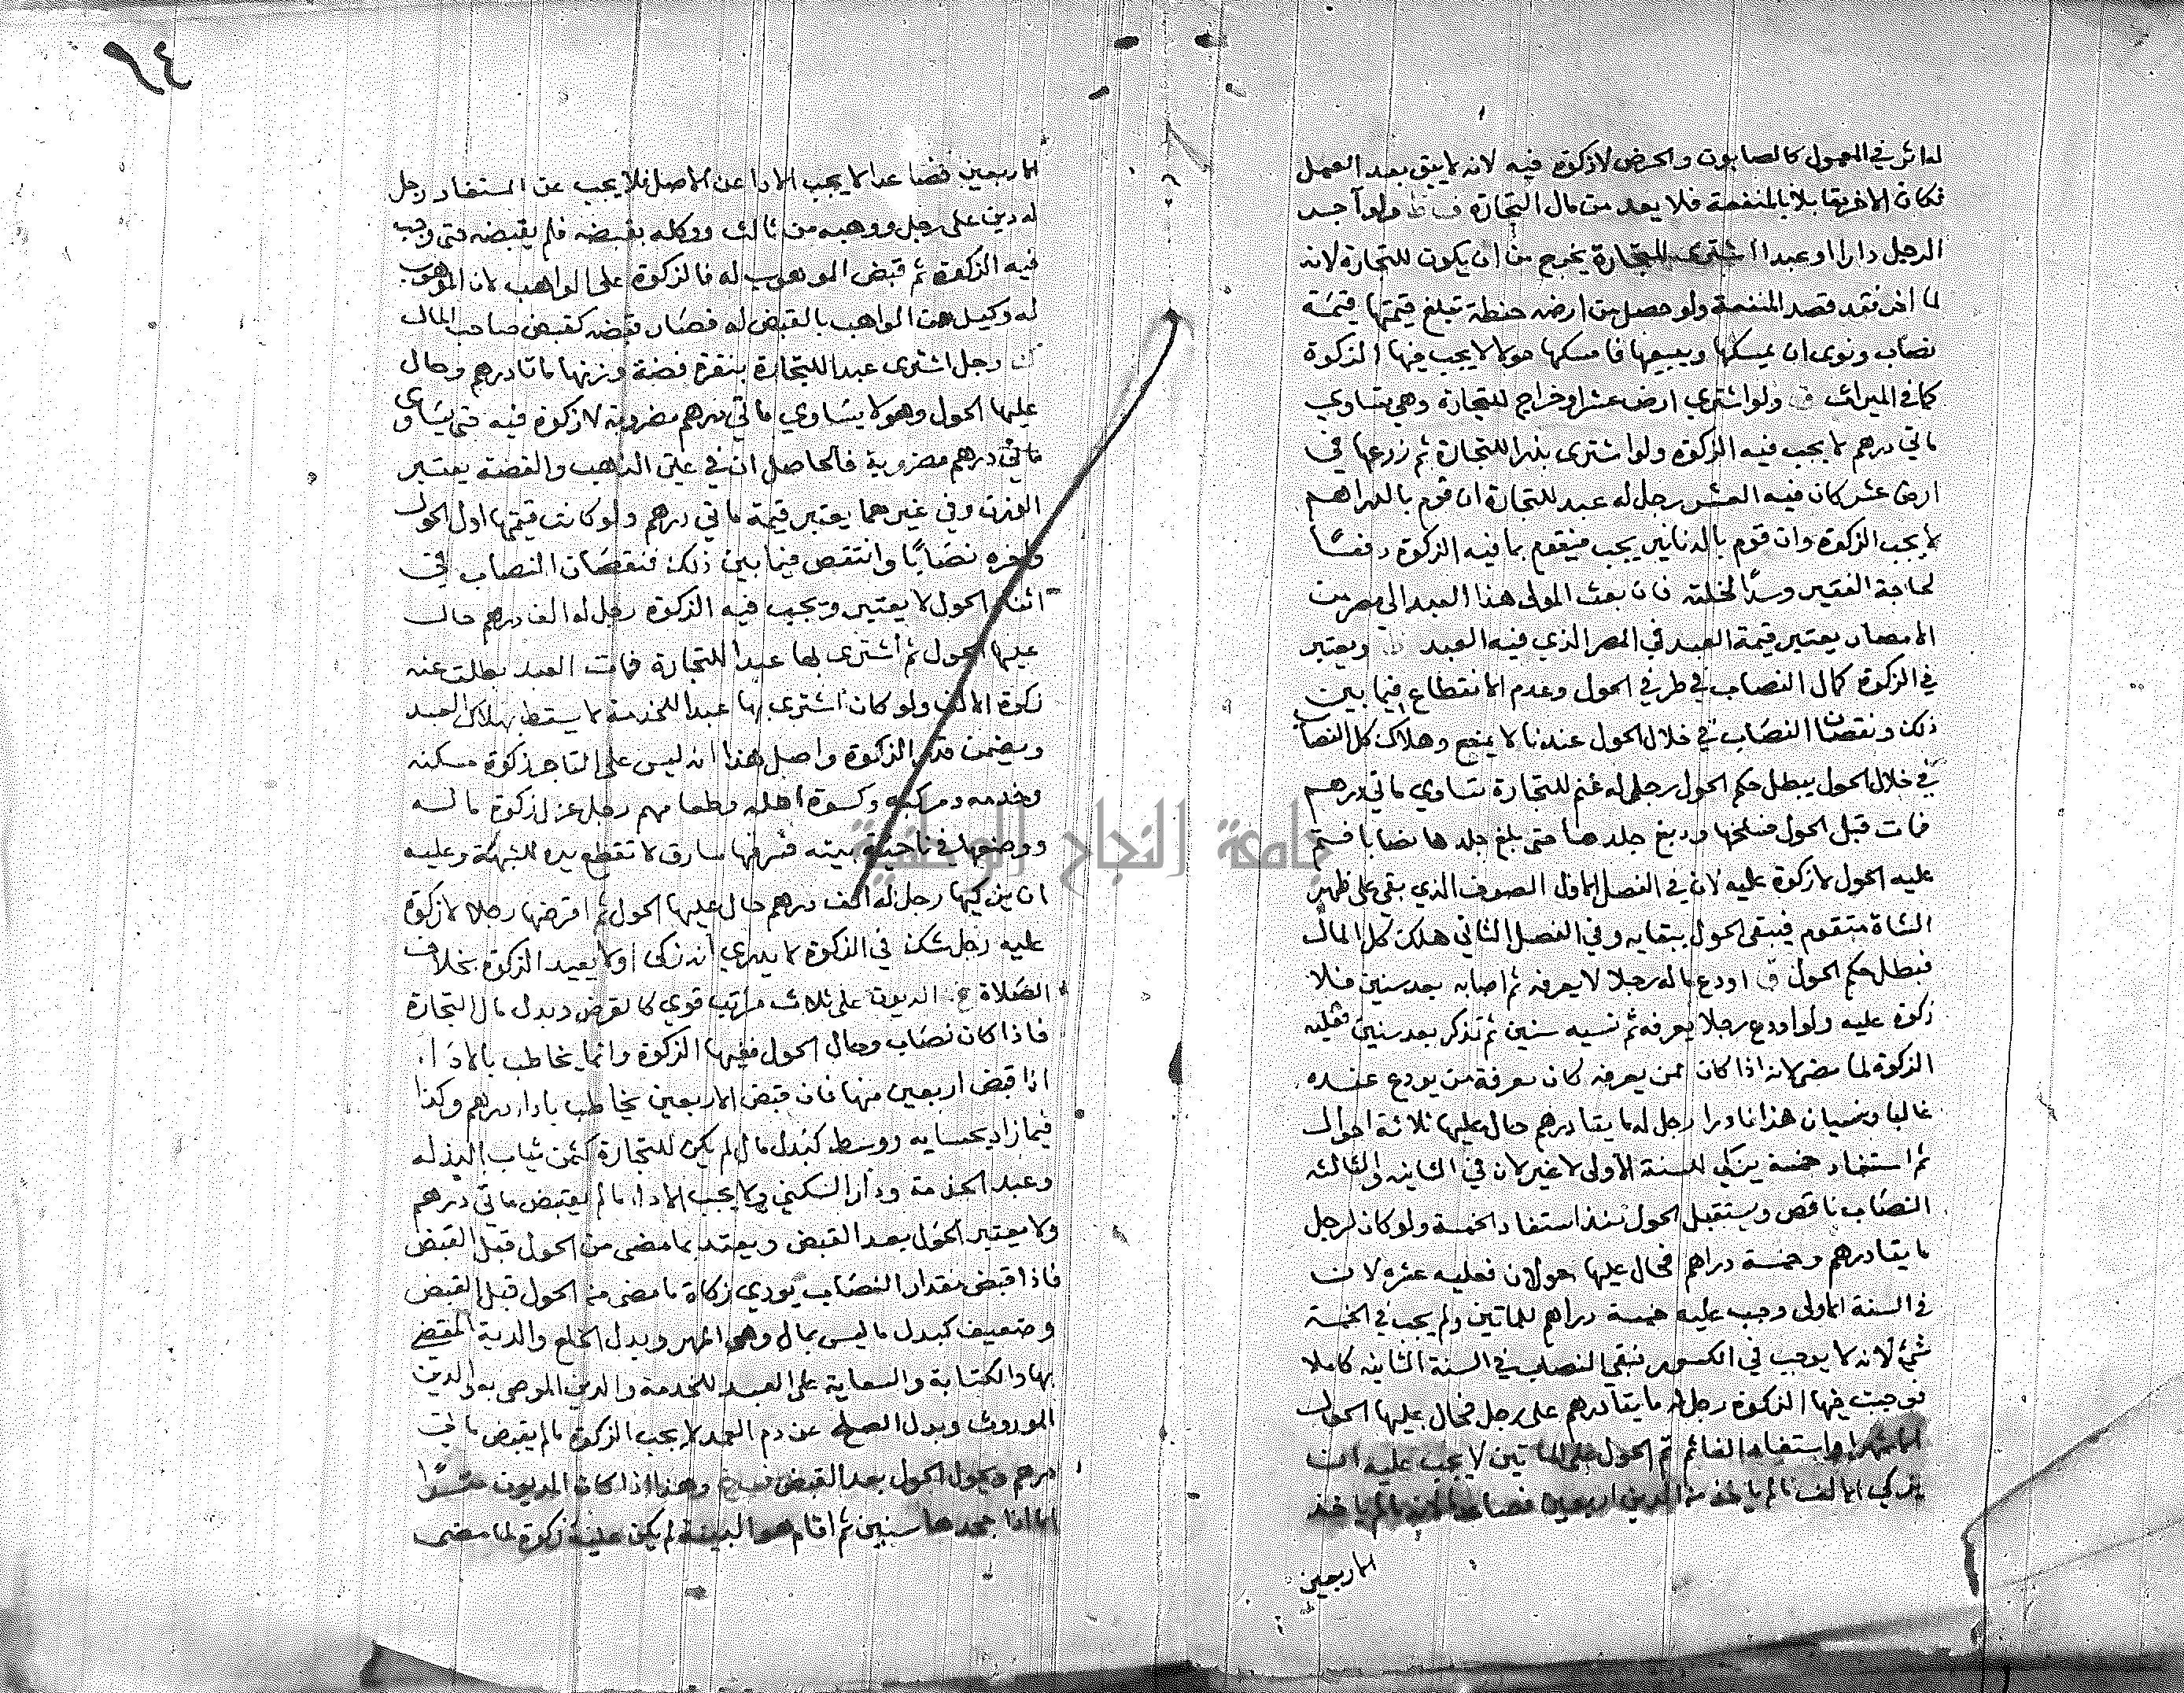 له اثر في المعمول كالصابون والحرض لا زكوة فيه لانه لا يبقى بعد العمل
فكان الاخر مقابلا بالمنفعة فلا يعد من مال التجارة ولو آجر
الرجل دارا او عبدا اشترى للتجارة يخرج من ان يكون للتجارة لانه
لما اجر فقد قصد المنفعة ولو حصل من ارضه حنطة تبلغ قيمتها قيمة
نصاب ونوى ان يمسكها ويبيعها فامسكها حولا لا يجب فيها الزكوة
كما في الميراث ولو اشترى ارض عشر او خراج للتجارة وهي تساوي
مائتي درهم لا يجب فيه الزكوة ولو اشترى بذرا للتجارة ثم زرعها في
ارض عشر كان فيه العشر رجل له عبد للتجارة ان قوم بالدراهم
لا يجب الزكوة وان قوم بالدنانير يجب فيقوم بما فيه الزكوة دفعًا
لحاجة الفقير وسدًا لخلته فان بعث المولى هذا العبد الى مصر من
الامصار يعتبر قيمة العبد في المصر الذي فيه العبد ويعتبر
في الزكوة كمال النصاب في طرفي الحول وعدم الانقطاع فيما بين
ذلك ونقصان النصاب في خلال الحول عندنا لا يمنع وهلاك كل النصاب
في خلال الحول يبطل حكم الحول رجل له غنم للتجارة تساوي مائتي درهم
فمات قبل الحول فسلخها ودبغ جلدها حتى بلغ جلدها نصابا فتم
عليه الحول لا زكوة عليه لان في الفصل الاول الصوف الذي بقي على ظهر
الشاة متقوم فيبقى الحول ببقايه وفي الفصل الثاني هلك كل المال
فبطل حكم الحول ق اودع ماله رجلا لا يعرفه ثم اصابه بعد سنين فلا
زكوة عليه ولو اودع رجلا يعرفه ثم نسيه سنين ثم تذكر بعد سنين فعليه
الزكوة لما مضى لانه اذا كان ممن يعرفه كان معرفة من يودع عنده
غالبا ونسيان هذا نادرا رجل له مايتا درهم حال عليها ثلاثة احوال
ثم استفاد خمسة يزكي للسنة الاولى لا غير لان في الثانيه والثالثه
النصاب ناقص ويستقبل الحول منذ استفاد الخمسة ولو كان لرجل
مايتا درهم وخمسة دراهم فحال عليها حولان فعليه عشرة لان
في السنة الاولى وجب عليه خمسة دراهم للمائتين ولم يجب في الخمسة
شئ لانه لا يوجب في الكسور فبقي النصاب في السنة الثانيه كاملا
فوجبت فيها الزكوة رجل له مايتا درهم على رجل فحال عليها الحول
الا شهرا واستفاد الفا ثم تم الحول على المائتين لا يجب عليه ان
يزكي الالف ما لم ياخذ من الدين اربعين فصاعدا لانه ما لم ياخذ
الاربعين
الاربعين فصاعدا لا يجب الادا عن الاصل فلا يجب عن المستفاد رجل
له دين على رجل ووهبه من ثالث ووكله بقبضه فلم يقبضه حتى وجب
فيه الزكوة ثم قبض الموهوب له فالزكوة على الواهب لان الموهوب
له وكيل من الواهب بالقبض له فصار قبضه كقبض صاحب المال
رجل اشترى عبدا للتجارة بنقرة فضة وزنها مائتا درهم وحال
عليها الحول وهو لا يساوي مائتي درهم مضروبة لا زكوة فيه حتى يساوي
مائتي درهم مضروبة فالحاصل ان في عين الذهب والفضة يعتبر
الوزن وفي غيرهما يعتبر قيمة مائتي درهم ولو كانت قيمتها اول الحول
واخره نصابًا وانتقص فيما بين ذلك فنقصان النصاب في
اثناء الحول لا يعتبر وتجب فيه الزكوة رجل له الف درهم حال
عليها الحول ثم اشترى بها عبدا للتجارة فمات العبد بطلت عنه
زكوة الالف ولو كان اشترى بها عبدا للخدمة لا يسقط بهلاك العبد
ويضمن قدر الزكوة واصل هذا انه ليس على التاجر زكوة مسكنه
وخدمه ومركبه وكسوة اهله وطعامهم رجل عزل زكوة ماله
ووضعها في ناحية بيته فسرقها سارق لا تقطع يده للشبهة وعليه
ان يزكيها رجل له الف درهم حال عليها الحول ثم اقرضها رجلا لا زكوة
عليه رجل شك في الزكوة لا يدري انه زكى او لا يعيد الزكوة بخلاف
الصلاة الديون على ثلاث مراتب قوي كالقرض وبدل مال التجارة
فاذا كان نصاب وحال الحول ففيها الزكوة وانما يخاطب بالادا
اذا قبض اربعين منها فان قبض الاربعين يخاطب باداء درهم وكذا
فيما زاد بحسابه ووسط كبدل مال لم يكن للتجارة كثمن ثياب البذله
وعبد الخدمة ودار السكنى ولا يجب الاداء ما لم يقبض مائتي درهم
ولا يعتبر الحول بعد القبض ويعتد بما مضى من الحول قبل القبض
فاذا قبض مقدار النصاب يودي زكاة ما مضى من الحول قبل القبض
وضعيف كبدل ما ليس بمال وهو المهر وبدل الخلع والدية المقضي
بها والكتابة والسعاية على العبد للخدمة والدين الموصى به والدين
الموروث وبدل الصلح عن دم العمد لا يجب الزكوة ما لم يقبض مائتي
درهم ويحول الحول بعد القبض وهذا اذا كان المديون مقرًا
اما اذا جحدها سنين ثم اقام هو البينة لم يكن عليه زكوة لما مضى
جامعة النجاح الوطنية